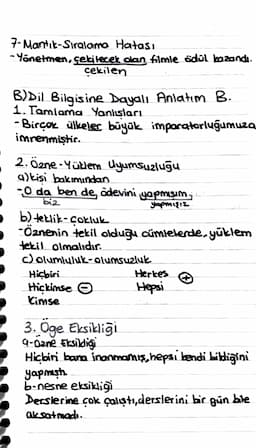 7-Mantık-Sıralama Hatası
-Yönetmen, çekilecek olan filmle ödül kazandı.
çekilen
B) Dil Bilgisine Dayalı Anlatım B.
1. Tamlama Yanlışları
-Birçok ülkeler büyük imparatorluğumuza
imrenmiştir.
2. Özne-Yüklem Uyumsuzluğu
a) kişi bakımından
-O da ben de, ödevini yapmışım,
biz yapmışız
b) teklik-çokluk
-Öznenin tekil olduğu cümlelerde, yüklem
tekil olmalıdır.
c) olumluluk-olumsuzluk
Hiçbiri Herkes +
Hiçkimse - Hepsi
Kimse
3. Öge Eksikliği
a-Özne Eksikliği
Hiçbiri bana inanmamış, hepsi kendi bildiğini
yapmıştı.
b-nesne eksikliği
Derslerine çok çalıştı, derslerini bir gün bile
aksatmadı.